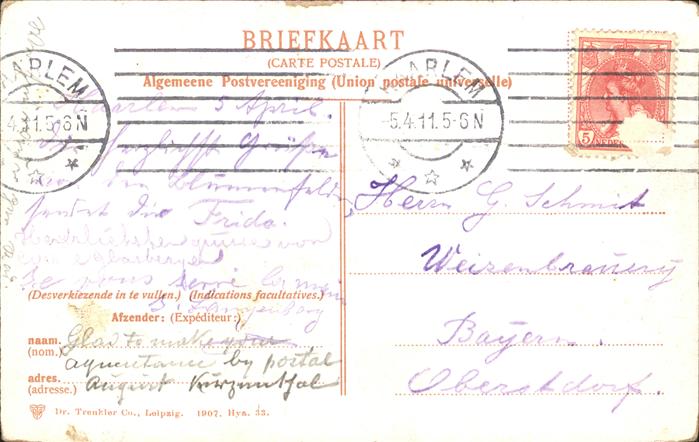 BRIEFKAART
(CARTE POSTALE)
Algemeene Postvereeniging (Union postale universelle)
HAARLEM
5.4.11.5-6N
HAARLEM
4.11.5-6N
5
NEDER
Haarlem 5 April.
Grüße
von den Blumenfeldern
sendet die Frida.
von
Je vous serre la main
(Desverkiezende in te vullen.) (Indications facultatives.)
Afzender: (Expéditeur:)
naam. (nom.) Glad to make your
aquentance by postal
adres. (adresse.) August Kurzenthal
Herrn G. Schmit
Weizenbrauery
Bayern.
Oberstdorf.
Dr. Trenkler Co., Leipzig. 1907. Hya. 33.